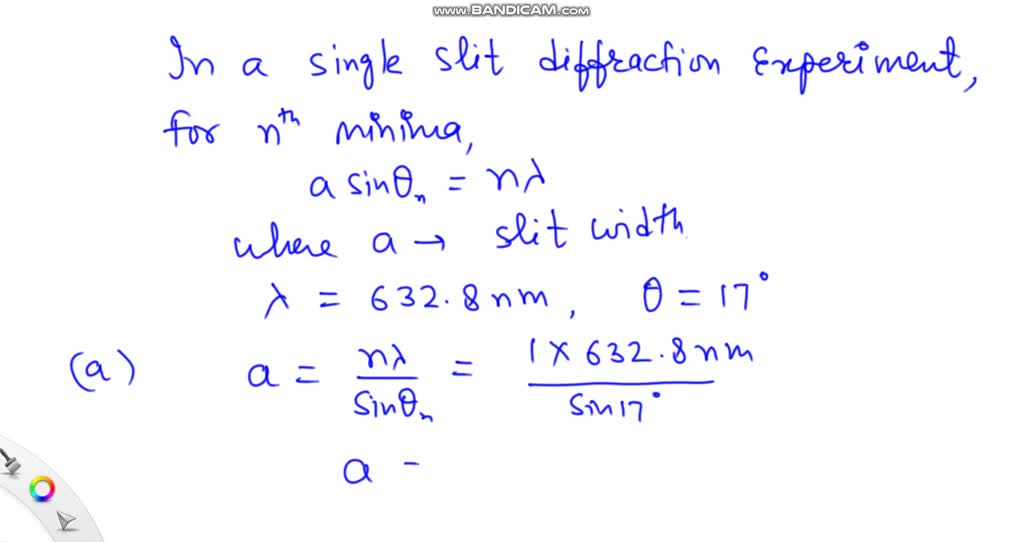 www.BANDICAM.com
In a single slit diffraction Experiment,
for nᵗʰ minima,
a sinθₙ = nλ
where a → slit width
λ = 632.8 nm, θ = 17°
(a) a = nλ / sinθₙ = 1 × 632.8 nm / sin 17°
a =